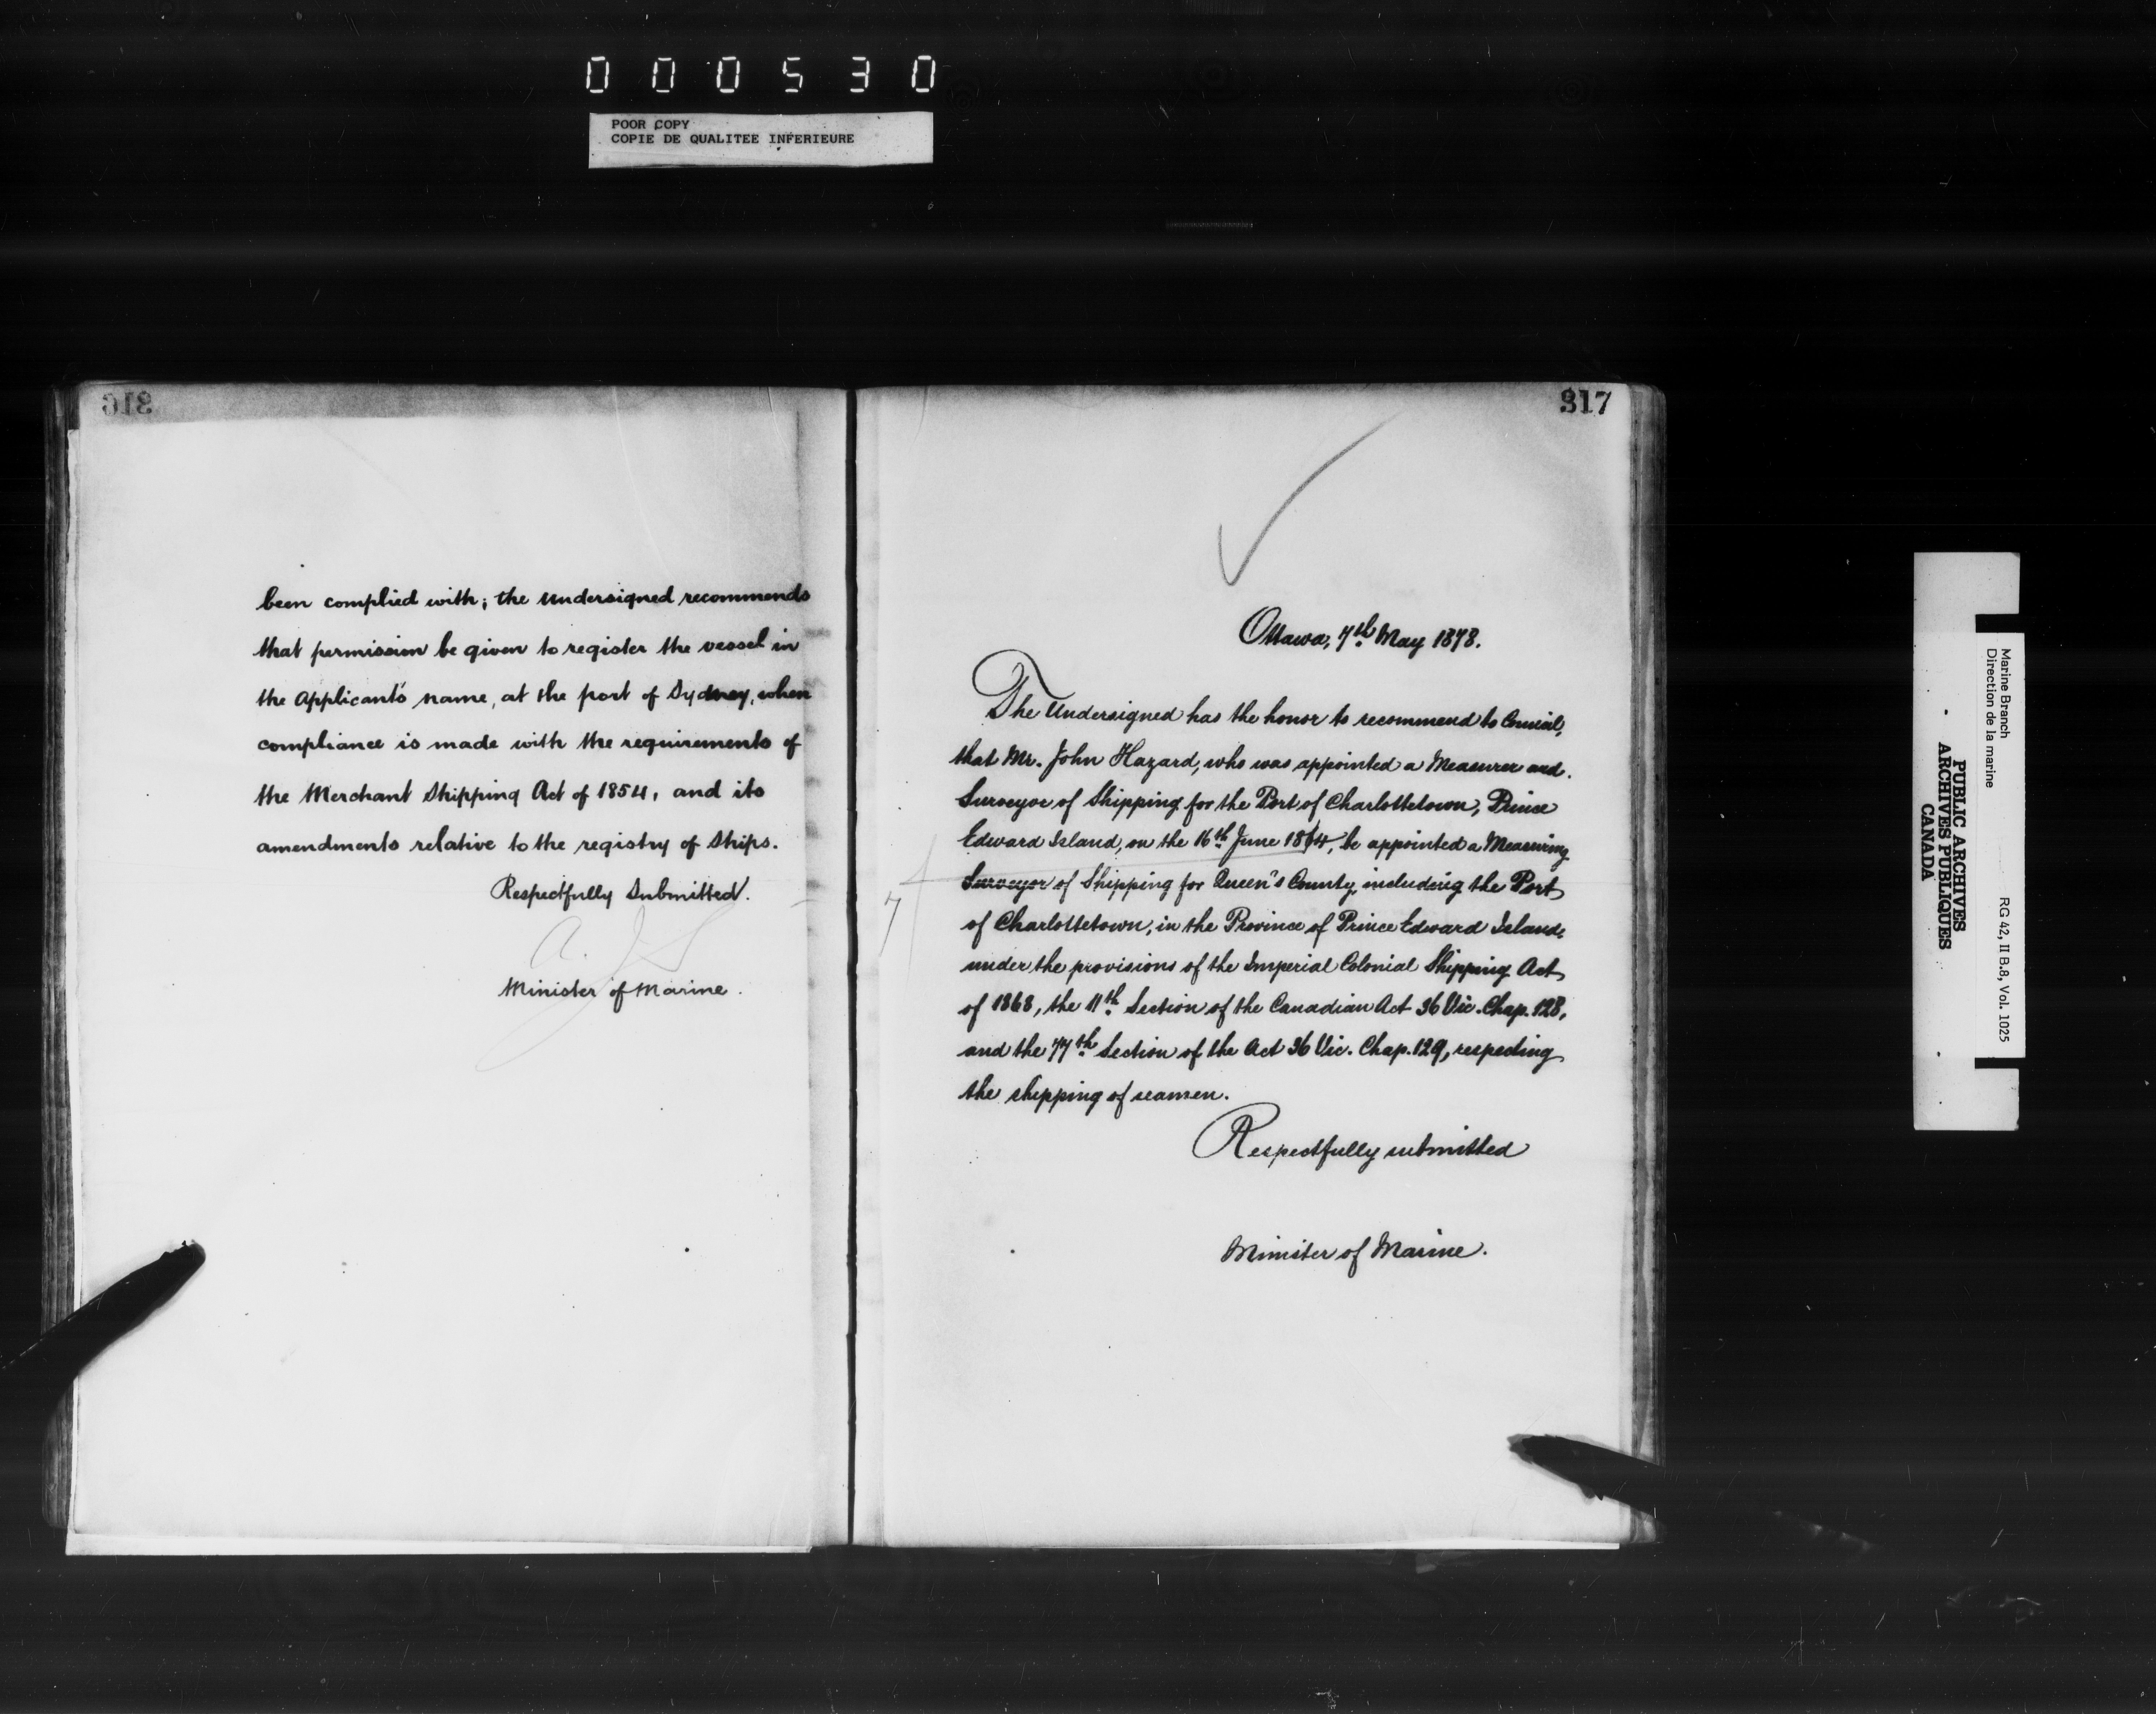 000530
POOR COPY
COPIE DE QUALITEE INFERIEURE
316
been complied with; the undersigned recommends
that permission be given to register the vessel in
the Applicant's name, at the port of Sydney, when
compliance is made with the requirements of
the Merchant Shipping Act of 1854, and its
amendments relative to the registry of Ships.
Respectfully Submitted.
A. J. S.
Minister of Marine.
317
Ottawa, 7th May 1878.
The Undersigned has the honor to recommend to Council,
that Mr. John Hazard, who was appointed a Measurer and
Surveyor of Shipping for the Port of Charlottetown, Prince
Edward Island, on the 16th June, be appointed a Measuring
Surveyor of Shipping for Queen's County, including the Port
of Charlottetown, in the Province of Prince Edward Island,
under the provisions of the Imperial Colonial Shipping Act
of 1868, the 11th Section of the Canadian Act 36 Vic. Chap. 128,
and the 77th Section of the Act 36 Vic. Chap. 129, respecting
the shipping of seamen.
7
Respectfully submitted
Minister of Marine.
PUBLIC ARCHIVES
ARCHIVES PUBLIQUES
CANADA
Marine Branch
Direction de la marine
RG 42, II B.8, Vol. 1025